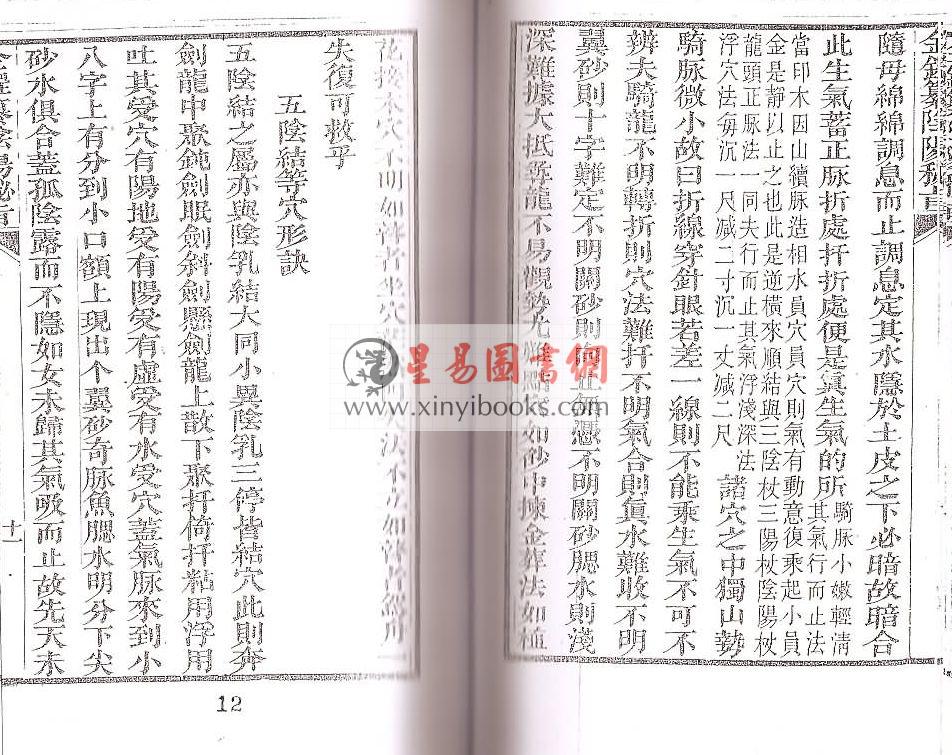 隨母綿綿調息而止調息定其水隱於土皮之下必暗故暗合
此生氣蓄正脉折處扦折處便是眞生氣的所
騎脉小嫩輕清
其氣行而止法
當印木因山續脉造相水員穴員穴則氣有動意復乘起小員
金是靜以止之也此是逆橫來順結與三陰杖三陽杖陰陽杖
龍頭正脉法一同夫行而止其氣浮淺深法
浮穴法每沉一尺减二寸沉一丈减二尺
諸穴之中獨山勢
騎脉微小故曰折線穿針眼若差一線則不能乘生氣不可不
辨夫騎龍不明轉折則穴法難扦不明氣合則眞水難收不明
翼砂則十字難定不明關砂則向正無憑不明關砂腮水則淺
深難據大抵 龍不易觀勢尤難 如砂中揀金葬法如種
花接木穴不明如瞽者坐穴 法不 如瞽者
失復可救乎
五陰結等穴形訣
五陰結之屬亦與陰乳結大同小異陰乳三停皆結穴此則奔
劍龍中聚鈍劍眠劍斜劍懸劍龍上散下聚扦倚扦粘用浮用
吐其爰穴有陽地爰有陽爰有虛爰有水受穴蓋氣脉來到小
八字上有分到小口額上現出个翼砂奇脉魚腮水明分下尖
砂水俱合蓋孤陰露而不隱如女未歸其氣吸而止故先天未
十一
12
星易圖書網
www.xinyibooks.com